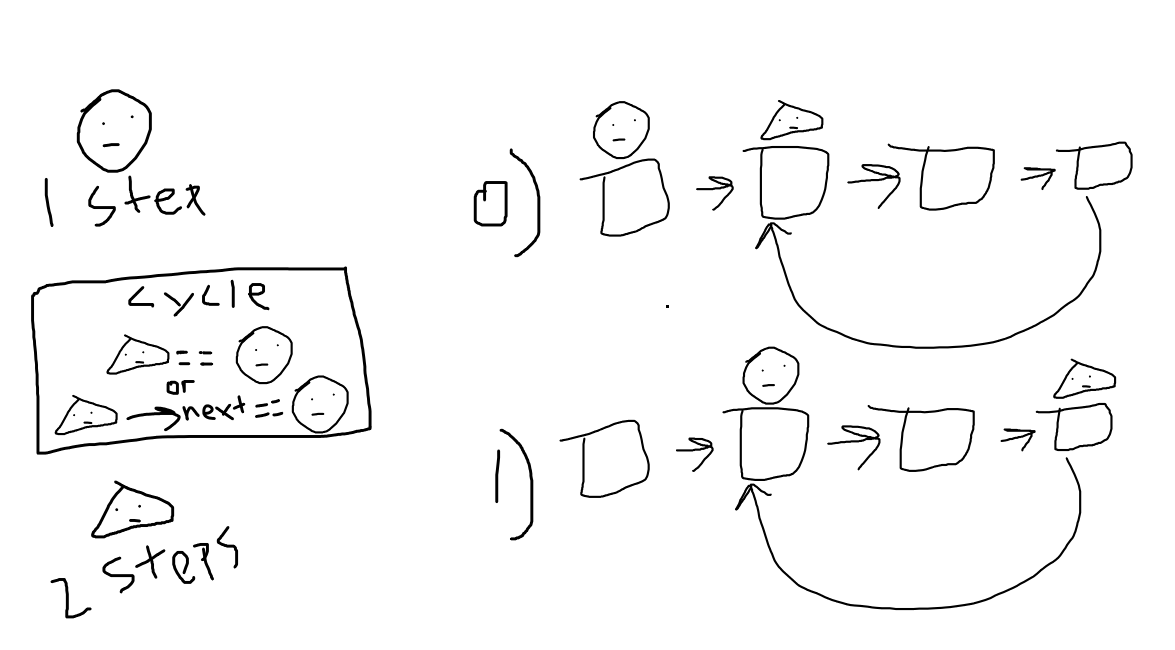 1 step
cycle
==
or
→ next ==
2 steps
0)
1)